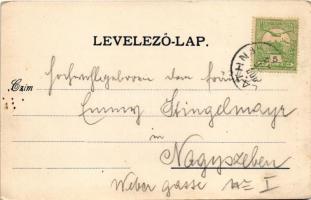 LEVELEZŐ-LAP.
Czím
Hochwohlgeboren dem Fräul.
Emmy Stingelmayr
in
Nagyszeben
Weber gasse No I
5